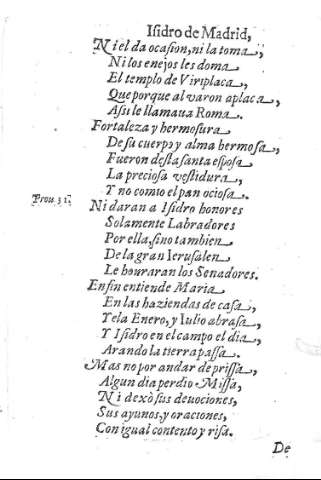 Isidro de Madrid,
Ni el da ocasion, ni la toma,
Ni los enojos les doma
El templo de Viriplaca,
Que porque al varon aplaca,
Asu le llamaua Roma.
Fortaleza y hermosura
De su cuerpo y alma hermosa,
Fueron desta santa esposa
La preciosa vestidura,
Y no comio el pan ociosa.
Prou. 31.
Ni daran a Isidro honores
Solamente Labradores
Por ella, sino tambien
De la gran Ierusalen
Le honraran los Senadores.
En fin entiende Maria
En las haziendas de casa,
Yela Enero, y Iulio abrasa,
Y Isidro en el campo el dia
Arando la tierra passa.
Mas no por andar de prissa,
Algun dia perdio Missa,
Ni dexò sus deuociones,
Sus ayunos, y oraciones,
Con igual contento y risa.
De